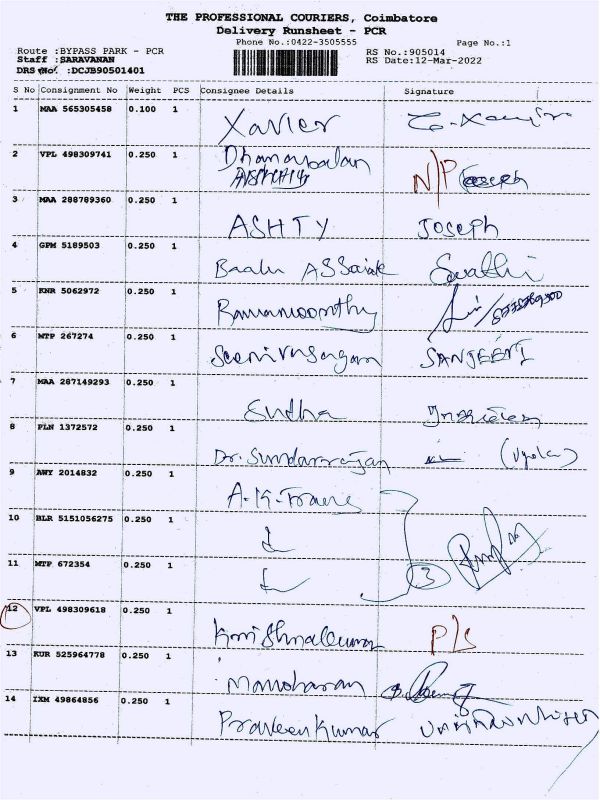 THE PROFESSIONAL COURIERS, Coimbatore
Delivery Runsheet - PCR
Phone No.:0422-3505555
Page No.:1
Route :BYPASS PARK - PCR
RS No.:905014
Staff :SARAVANAN
RS Date:12-Mar-2022
DRS No. :DCJB90501401
S No Consignment No Weight PCS Consignee Details Signature
1 MAA 565305458 0.100 1 Xavier
2 VPL 498309741 0.250 1 Dhanabalan N/P
3 MAA 288789360 0.250 1 ASHTY Joseph
4 GPM 5189503 0.250 1 Baalu Swathi
5 KNR 5062972 0.250 1 Ramamoorthy
6 MTP 267274 0.250 1 SANJEEVI
7 MAA 287149293 0.250 1 Sudha
8 PLN 1372572 0.250 1 Dr. Sundararajan
9 AWY 2014832 0.250 1 A.K.
10 BLR 5151056275 0.250 1
11 MTP 672354 0.250 1 3
12 VPL 498309618 0.250 1 Krishnakumar P/S
13 KUR 525964778 0.250 1 Manoharan
14 IXM 49864856 0.250 1 Praveen Kumar